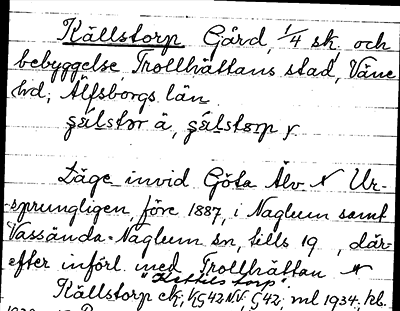 Källstorp Gård, 1/4 sk, och
bebyggelse, Trollhättans stad, Väne
hd, Älfsborgs län
Läge invid Göta Älv. Ur-
sprungligen, före 1887, i Naglum samt
Vassända-Naglum sn, tills 19 , där-
efter införl. med Trollhättan
"Kettils torp".
Källstorp ck, G42, ml 1934, hb.